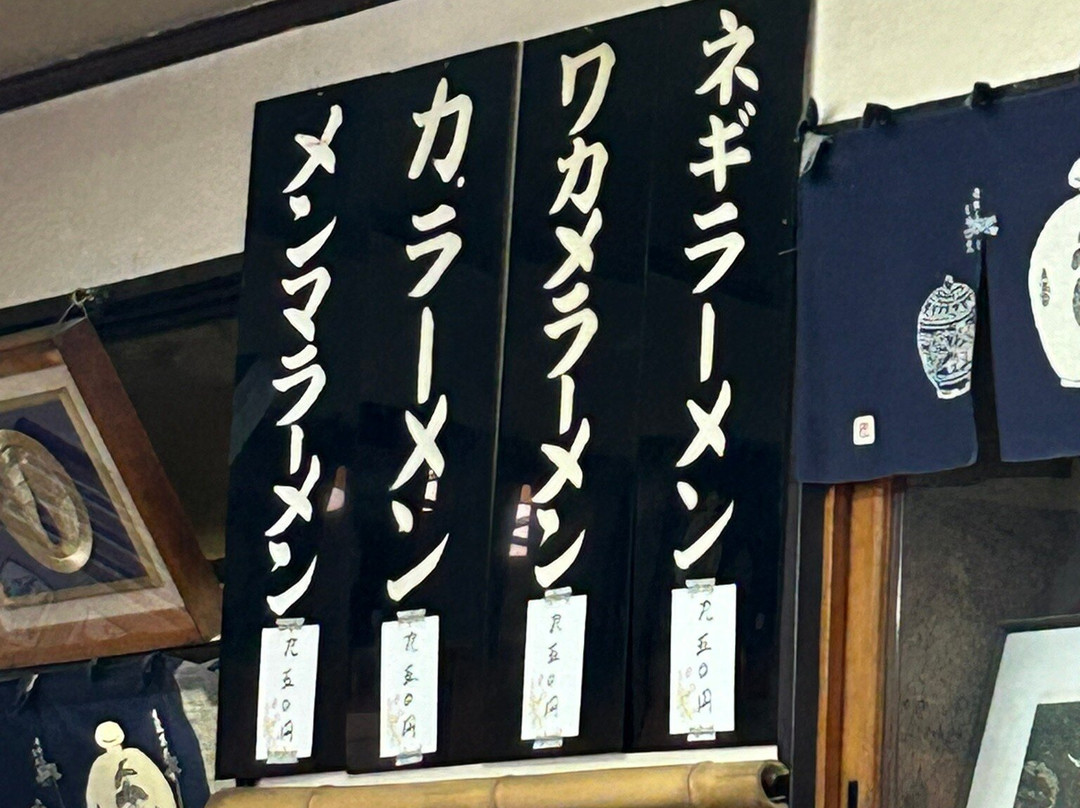 ネギラーメン
九五〇円
ワカメラーメン
九五〇円
力.ラーメン
九五〇円
メンマラーメン
九五〇円